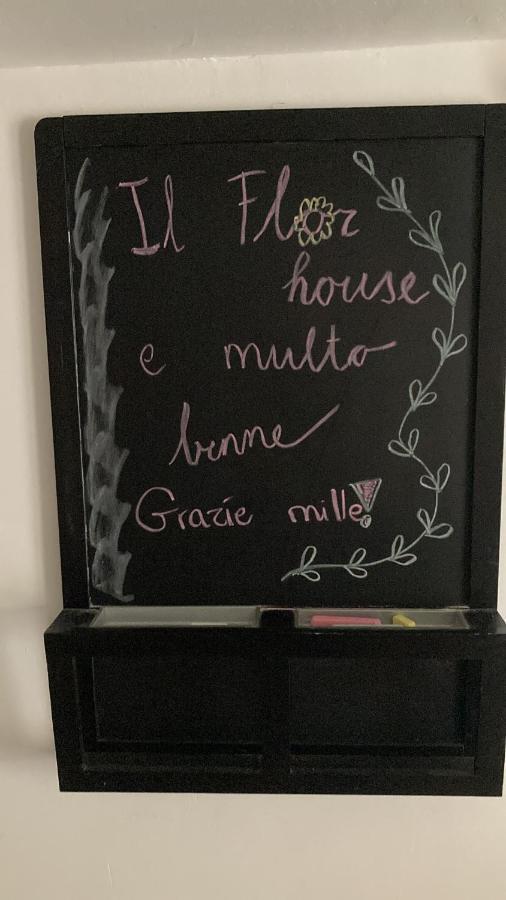 Il Flor
house
e multo
benne
Grazie mille!